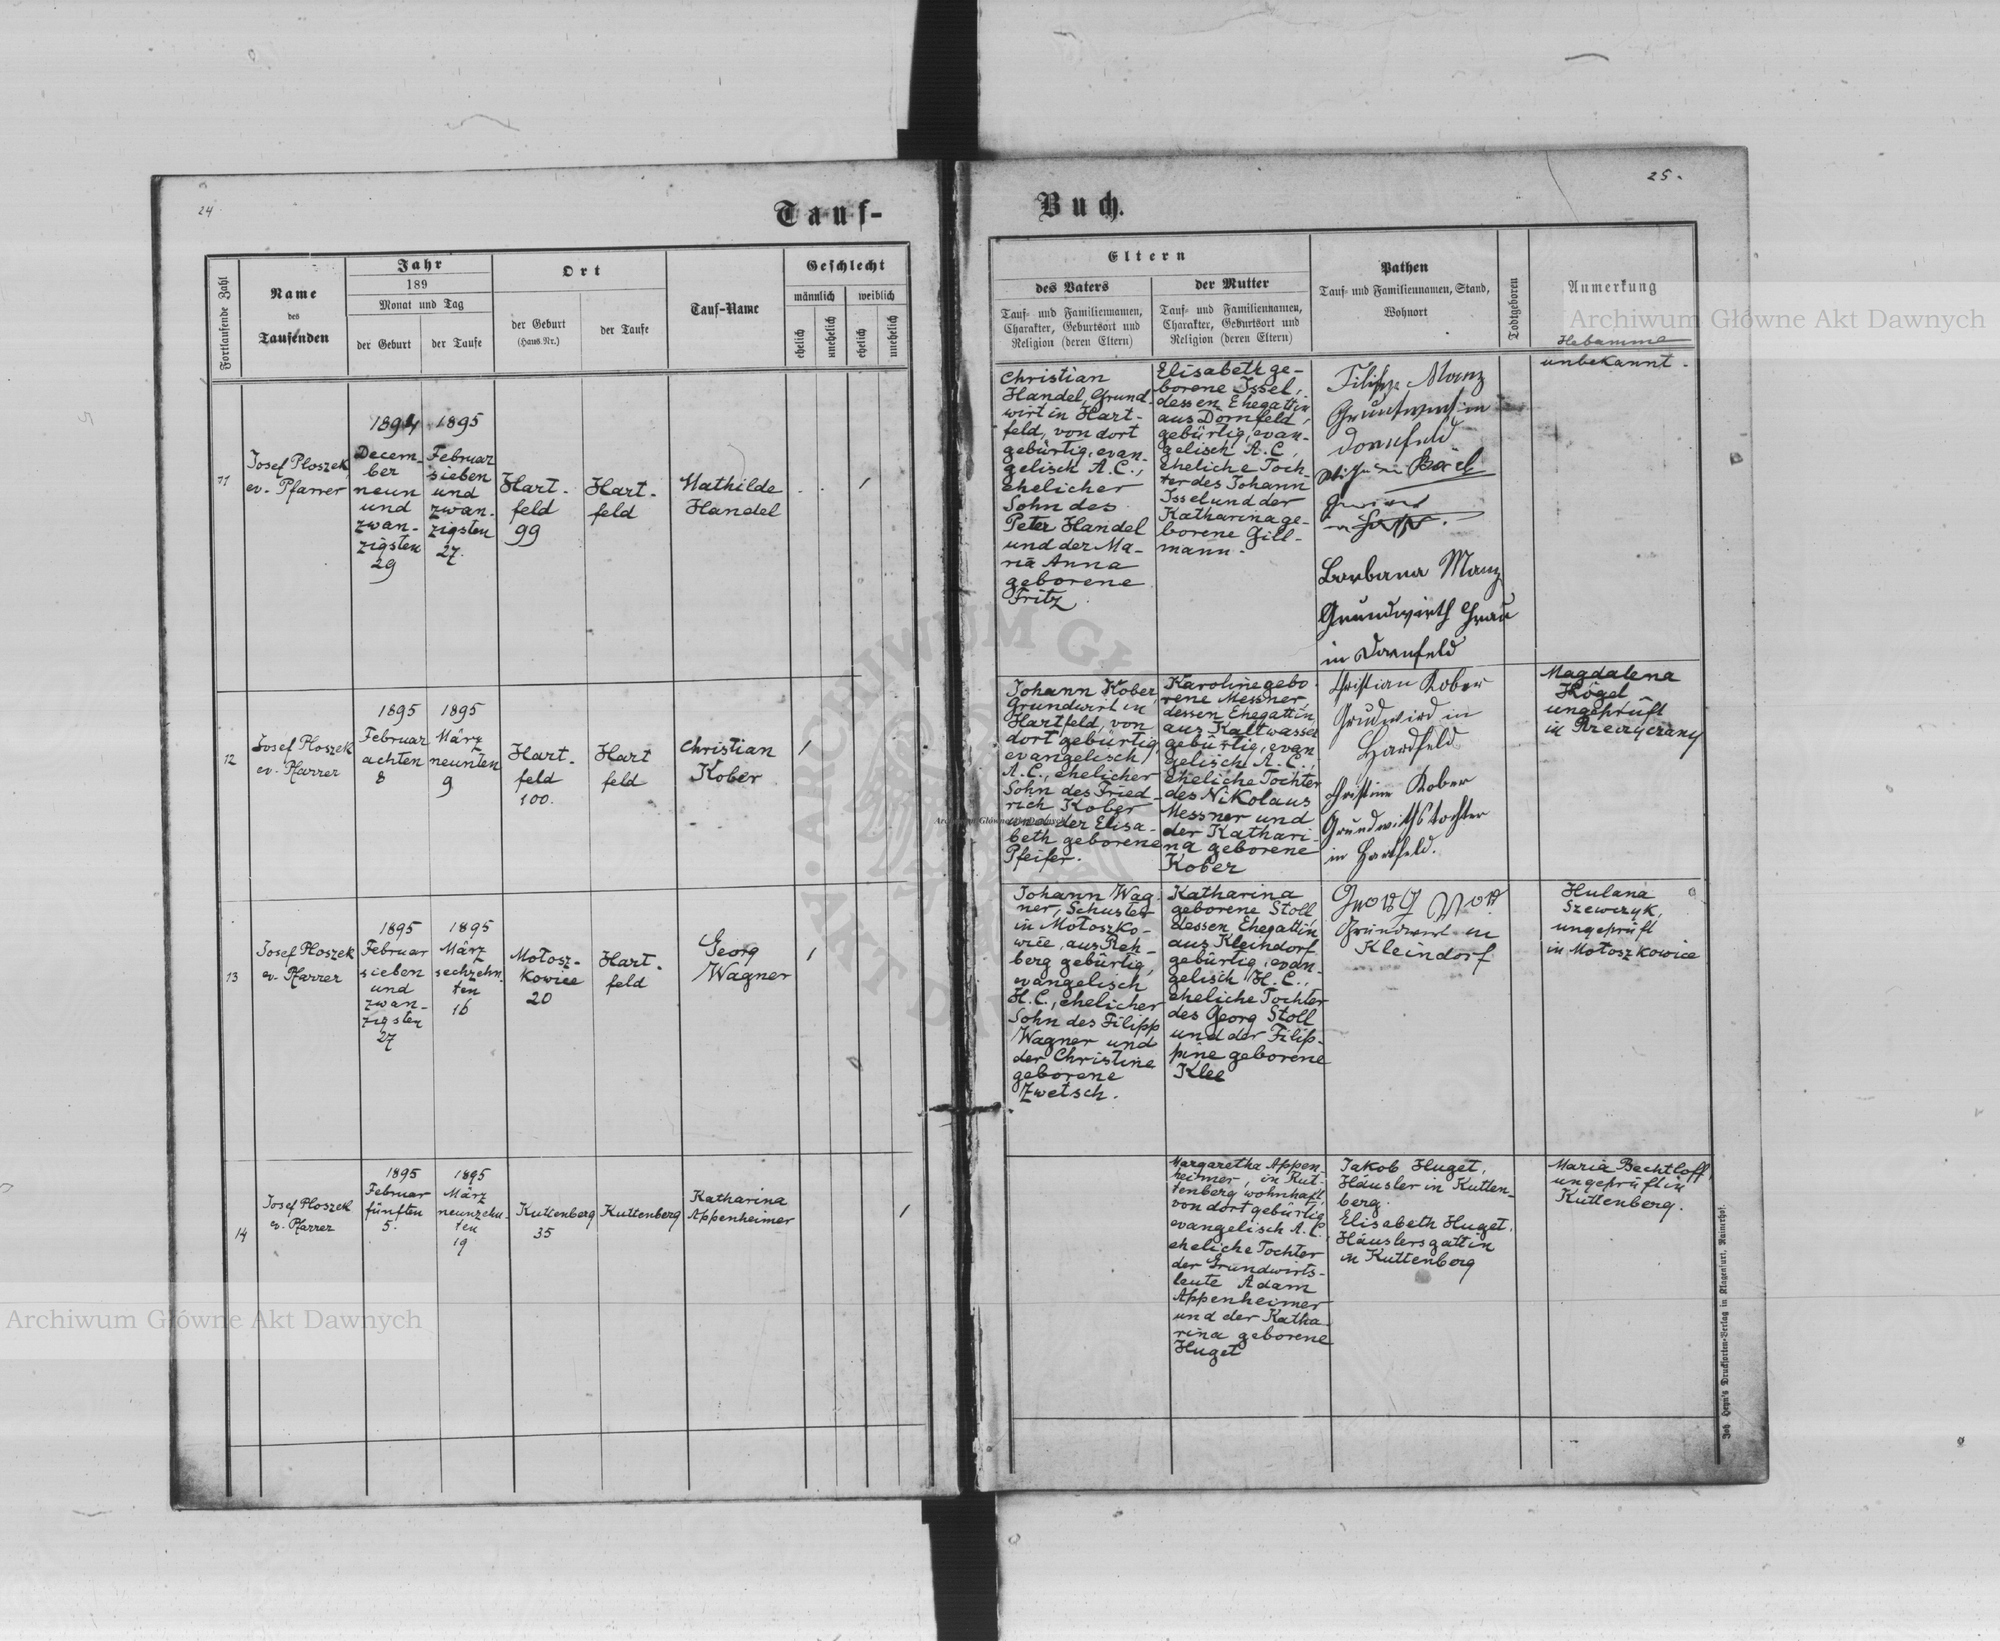 24
Tauf-
Fortlaufende Zahl
Name
des
Taufenden
Jahr
189
Monat und Tag
der Geburt
der Taufe
Ort
der Geburt
(Haus-Nr.)
der Taufe
Tauf-Name
Geschlecht
männlich
weiblich
ehelich
unehelich
ehelich
unehelich
11
Josef Ploszek,
ev. Pfarrer
1894
Decem-
ber
neun
und
zwan-
zigsten
29
1895
Februar
sieben
und
zwan-
zigsten
27.
Hart-
feld
99
Hart-
feld
Mathilde
Handel
. . 1
12
Josef Ploszek
ev. Pfarrer
1895
Februar
achten
8
1895
März
neunten
9
Hart-
feld
100.
Hart
feld
Christian
Kober
1
13
Josef Ploszek
ev. Pfarrer
1895
Februar
sieben
und
zwan-
zigsten
27
1895
März
sechzehn-
ten
16
Mołosz-
kowice
20
Hart-
feld
Georg
Wagner
1
14
Josef Ploszek
ev. Pfarrer
1895
Februar
fünften
5.
1895
März
neunzehn-
ten
19
Kuttenberg
35
Kuttenberg
Katharina
Appenheimer
1
25.
Buch.
Eltern
des Vaters
Tauf- und Familiennamen,
Charakter, Geburtsort und
Religion (deren Eltern)
der Mutter
Tauf- und Familiennamen,
Charakter, Geburtsort und
Religion (deren Eltern)
Pathen
Tauf- und Familiennamen, Stand,
Wohnort
Todtgeboren
Anmerkung
Hebamme
Christian
Handel, Grund-
wirt in Hart-
feld, von dort
gebürtig, evan-
gelisch A.C.,
ehelicher
Sohn des
Peter Handel
und der Ma-
ria Anna
geborene
Fritz
Elisabeth ge-
borene Issel,
dessen Ehegattin
aus Dornfeld,
gebürtig, evan-
gelisch A.C,
eheliche Toch-
ter des Johann
Issel und der
Katharina ge-
borene Gill-
mann.
Manz
Grundwirt in
Dornfeld
Barbara Manz
Grundwirth Frau
in Dornfeld
unbekannt.
Johann Kober,
Grundwirt in
Hartfeld, von
dort gebürtig,
evangelisch
A.C., ehelicher
Sohn des Fried-
rich Kober
und der Elisa-
beth geborene
Pfeifer.
Karoline gebo-
rene Messner
dessen Ehegattin,
aus Kaltwasser
gebürtig, evan
gelisch A.C.,
eheliche Tochter
des Nikolaus
Messner und
der Kathari-
na geborene
Kober
Christian Kober
Grudwird in
Hardfeld
Christine Kober
Grundwiths tochter
in Hartfeld.
Magdalena
Högel
ungeprüft
in Rzeczyczany
Johann Wag-
ner, Schuster
in Mołoszko-
wice, aus Reh-
berg gebürtig,
evangelisch
H.C., ehelicher
Sohn des Filipp
Wagner und
der Christine
geborene
Zwetsch.
Katharina
geborene Stoll,
dessen Ehegattin,
aus Kleindorf
gebürtig, evan-
gelisch H.C.,
eheliche Tochter
des Georg Stoll
und der Filip-
pine geborene
Klee
Grundwirt in
Kleindorf
Hulana
Szewczyk,
ungeprüft
in Mołoszkowice
Margaretha Appen-
heimer, in Kut-
tenberg wohnhaft,
von dort gebürtig,
evangelisch A.C.,
eheliche Tochter
der Grundwirts-
leute Adam
Appenheimer
und der Katha-
rina geborene
Huget
Jakob Huget,
Häusler in Kutten-
berg.
Elisabeth Huget,
Häuslersgattin
in Kuttenberg
Maria Bechtloff,
ungeprüft in
Kuttenberg.
Joh. Heyn's Drucksorten-Verlag in Klagenfurt, Rainerhof.
Archiwum Główne Akt Dawnych
Archiwum Główne Akt Dawnych
Archiwum Główne Akt Dawnych